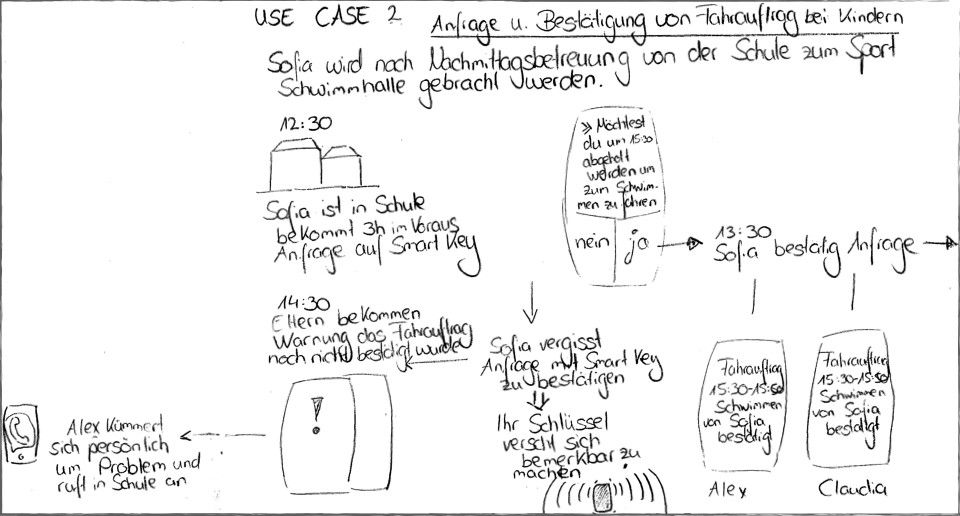 USE CASE 2
Anfrage u. Bestätigung von Fahrauftrag bei Kindern
Sofia wird nach Nachmittagsbetreuung von der Schule zum Sport
Schwimmhalle gebracht werden.
12:30
Sofia ist in Schule
bekommt 3h im Voraus
Anfrage auf Smart Key
» Möchtest
du um 15:30
abgeholt
werden um
zum Schwim-
men zu fahren
nein
ja
13:30
Sofia bestätig Anfrage
14:30
Eltern bekommen
Warnung das Fahrauftrag
noch nicht bestätigt wurde
!
Alex kümmert
sich persönlich
um Problem und
ruft in Schule an
Sofia vergisst
Anfrage mit Smart Key
zu bestätigen
Ihr Schlüssel
verscht sich
bemerkbar zu
machen
Fahrauftrag
15:30-15:50
Schwimmen
von Sofia
bestätigt
Alex
Fahrauftrag
15:30-15:50
Schwimmen
von Sofia
bestätigt
Claudia